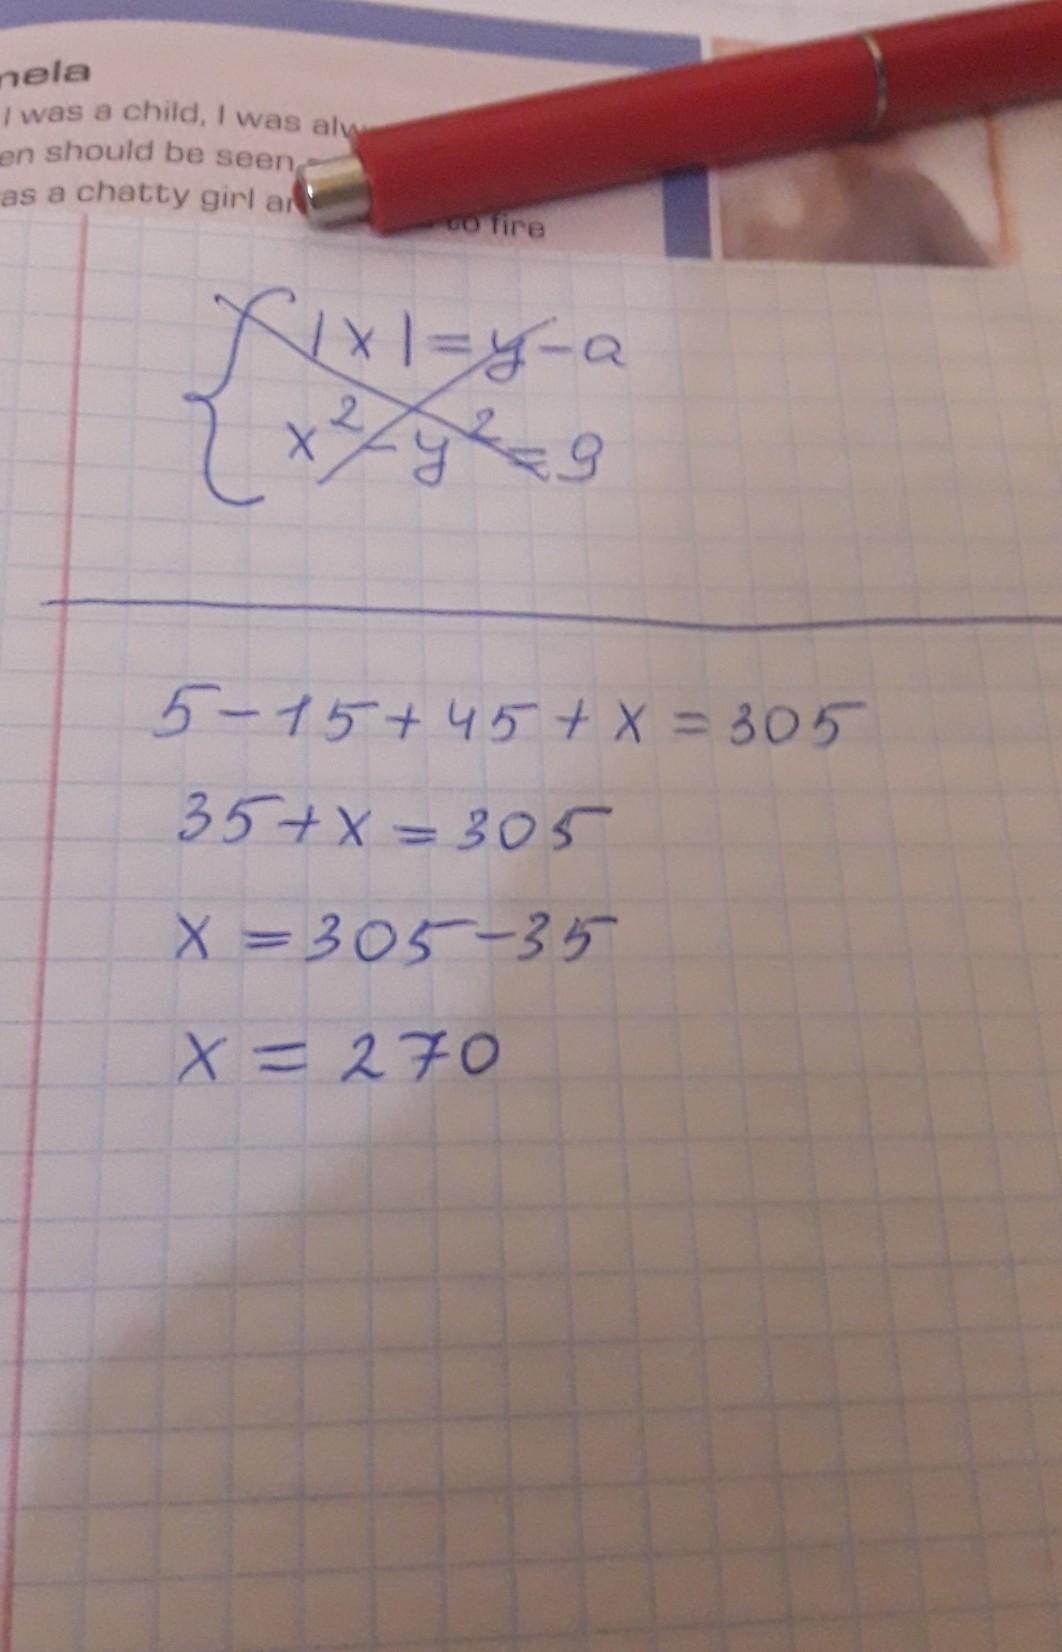 I was a child, I was
should be seen
as a chatty girl
to fire
|x| = y - a
x² - y² = 9
5 - 15 + 45 + x = 305
35 + x = 305
x = 305 - 35
x = 270